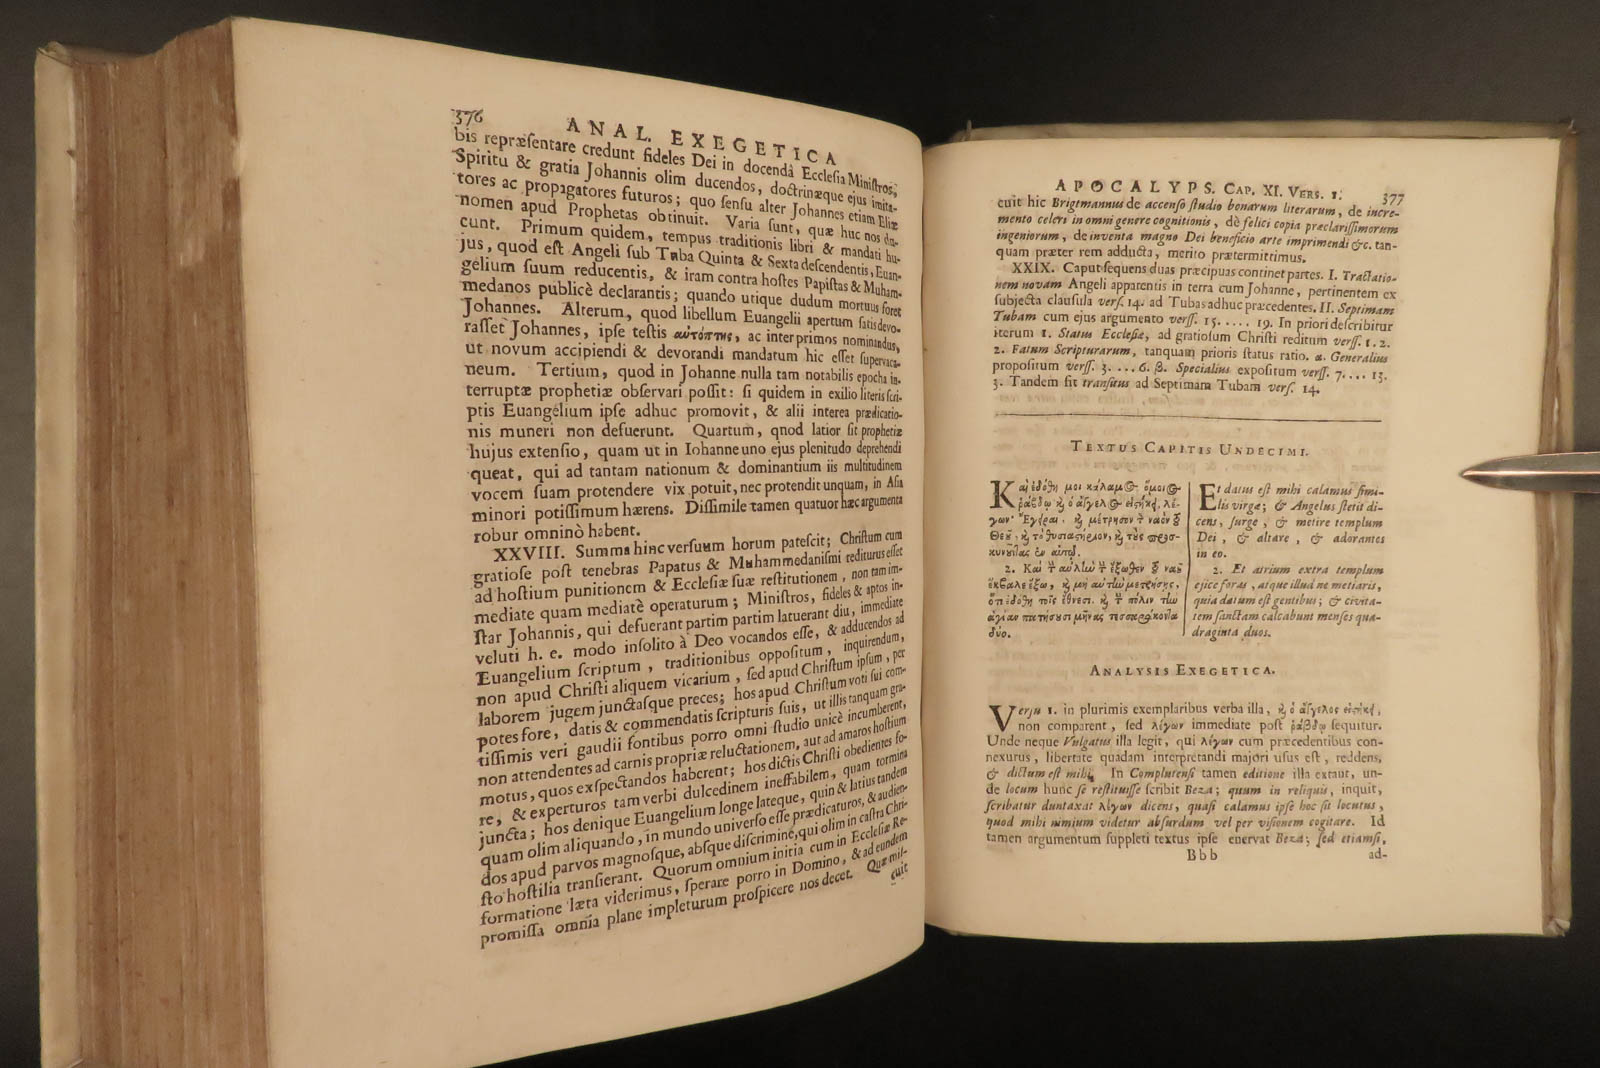 376
ANAL. EXEGETICA
bis repræſentare credunt fideles Dei in docendâ Eccleſia Miniſtros,
Spiritu & gratia Johannis olim ducendos, doctrinæque ejus imita-
tores ac propagatores futuros; quo ſenſu alter Johannes etiam Eliæ
nomen apud Prophetas obtinuit. Varia ſunt, quæ huc nos du-
cunt. Primum quidem, tempus traditionis libri & mandati hu-
jus, quod eſt Angeli ſub Tuba Quinta & Sexta deſcendentis, Euan-
gelium ſuum reducentis, & iram contra hoſtes Papiſtas & Muham-
medanos publicè declarantis; quando utique dudum mortuus foret
Johannes. Alterum, quod libellum Euangelii apertum ſatis devo-
raſſet Johannes, ipſe teſtis αυτόπτης, ac inter primos nominandus,
ut novum accipiendi & devorandi mandatum hic eſſet ſupervaca-
neum. Tertium, quod in Johanne nulla tam notabilis epocha in-
terruptæ prophetiæ obſervari poſſit: ſi quidem in exilio literis ſcri-
ptis Euangelium ipſe adhuc promovit, & alii interea prædicatio-
nis muneri non defuerunt. Quartum, qnod latior ſit prophetiæ
hujus extenſio, quam ut in Iohanne uno ejus plenitudo deprehendi
queat, qui ad tantam nationum & dominantium iis multitudinem
vocem ſuam protendere vix potuit, nec protendit unquam, in Aſia
minori potiſſimum hærens. Diſſimile tamen quatuor hæc argumenta
robur omninò habent.
XXVIII. Summa hinc verſuum horum pateſcit; Chriſtum cum
gratioſe poſt tenebras Papatus & Muhammedaniſmi rediturus eſſet
ad hoſtium punitionem & Eccleſiæ ſuæ reſtitutionem, non tam im-
mediate quam mediatè operaturum; Miniſtros, fideles & aptos in-
ſtar Johannis, qui defuerant partim partim latuerant diu, immediate
veluti h. e. modo inſolito à Deo vocandos eſſe, & adducendos ad
Euangelium ſcriptum, traditionibus oppoſitum, inquirendum,
non apud Chriſti aliquem vicarium, ſed apud Chriſtum ipſum, per
laborem jugem junctaſque preces; hos apud Chriſtum voti ſui com-
potes fore, datis & commendatis ſcripturis ſuis, ut illis tanquam gra-
tiſſimis veri gaudii fontibus porro omni ſtudio unicè incumberent,
non attendentes ad carnis propriæ reluctationem, aut ad amaros hoſtium
motus, quos exſpectandos haberent; hos dictis Chriſti obedientes fo-
re, & experturos tam verbi dulcedinem ineffabilem, quam tormina
juncta; hos denique Euangelium longe lateque, quin & latius tandem
quam olim aliquando, in mundo univerſo eſſe prædicaturos, & audien-
dos apud parvos magnoſque, abſque diſcrimine, qui olim in caſtra Chri-
ſto hoſtilia tranſierant. Quorum omnium initia cum in Eccleſiæ Re-
formatione læta viderimus, ſperare porro in Domino, & ad eundem
promiſſa omnia plane impleturum proſpicere nos decet. Quæ miſ-
cuit
APOCALYPS. CAP. XI. VERS. 1. 377
cuit hic Brigtmannus de accenſo ſtudio bonarum literarum, de incre-
mento celeri in omni genere cognitionis, dè felici copia præclariſſimorum
ingeniorum, de inventa magno Dei beneficio arte imprimendi &c. tan-
quam præter rem adducta, merito prætermittimus.
XXIX. Caput ſequens duas præcipuas continet partes. I. Tractatio-
nem novam Angeli apparentis in terra cum Johanne, pertinentem ex
ſubjecta clauſula verſ. 14. ad Tubas adhuc præcedentes. II. Septimam
Tubam cum ejus argumento verſſ. 15. . . . . 19. In priori deſcribitur
iterum 1. Status Eccleſiæ, ad gratioſum Chriſti reditum verſſ. 1. 2.
2. Fatum Scripturarum, tanquam prioris ſtatus ratio. α. Generalius
propoſitum verſſ. 3. . . . 6. β. Specialius expoſitum verſſ. 7. . . . 13.
3. Tandem fit tranſitus ad Septimam Tubam verſ. 14.
TEXTUS CAPITIS UNDECIMI.
Καὶ ἐδόθη μοι κάλαμος ὅμοιος
ῥάβδῳ, καὶ ὁ ἄγγελος εἱςήκει, λέ-
γων· Ἔγειραι, καὶ μέτρησον τὸν ναὸν τοῦ
Θεοῦ, καὶ τὸ θυσιαςήριον, καὶ τοὺς προσ-
κυνοῦντας ἐν αὐτῷ.
2. Καὶ τὴν αὐλὴν τὴν ἔξωθεν τοῦ ναοῦ
ἔκβαλε ἔξω, καὶ μὴ αὐτὴν μετρήσῃς,
ὅτι ἐδόθη τοῖς ἔθνεσι· καὶ τὴν πόλιν τὴν
ἁγίαν πατήσουσι μῆνας τεσσαράκοντα
δύο.
Et datus eſt mihi calamus ſimi-
lis virgæ; & Angelus ſtetit di-
cens, ſurge, & metire templum
Dei, & altare, & adorantes
in eo.
2. Et atrium extra templum
ejice foras, atque illud ne metiaris,
quia datum eſt gentibus; & civita-
tem ſanctam calcabunt menſes qua-
draginta duos.
ANALYSIS EXEGETICA.
Verſu 1. in plurimis exemplaribus verba illa, καὶ ὁ ἄγγελος εἱςήκει,
non comparent, ſed λέγων immediate poſt ῥάβδῳ ſequitur.
Unde neque Vulgatus illa legit, qui λέγων cum præcedentibus con-
nexurus, libertate quadam interpretandi majori uſus eſt, reddens,
& dictum eſt mihi. In Complutenſi tamen editione illa extant, un-
de locum hunc ſe reſtituiſſe ſcribit Beza; quum in reliquis, inquit,
ſcribatur duntaxat λέγων dicens, quaſi calamus ipſe hoc ſit locutus,
quod mihi nimium videtur abſurdum vel per viſionem cogitare. Id
tamen argumentum ſuppleti textus ipſe enervat Beza; ſed etiamſi,
Bbb ad-